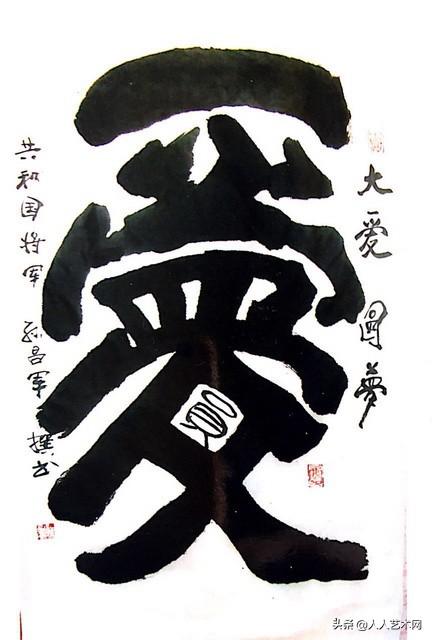 愛
大爱 圆夢
共和国将军 昌军 撰书
头条 @人人艺术网